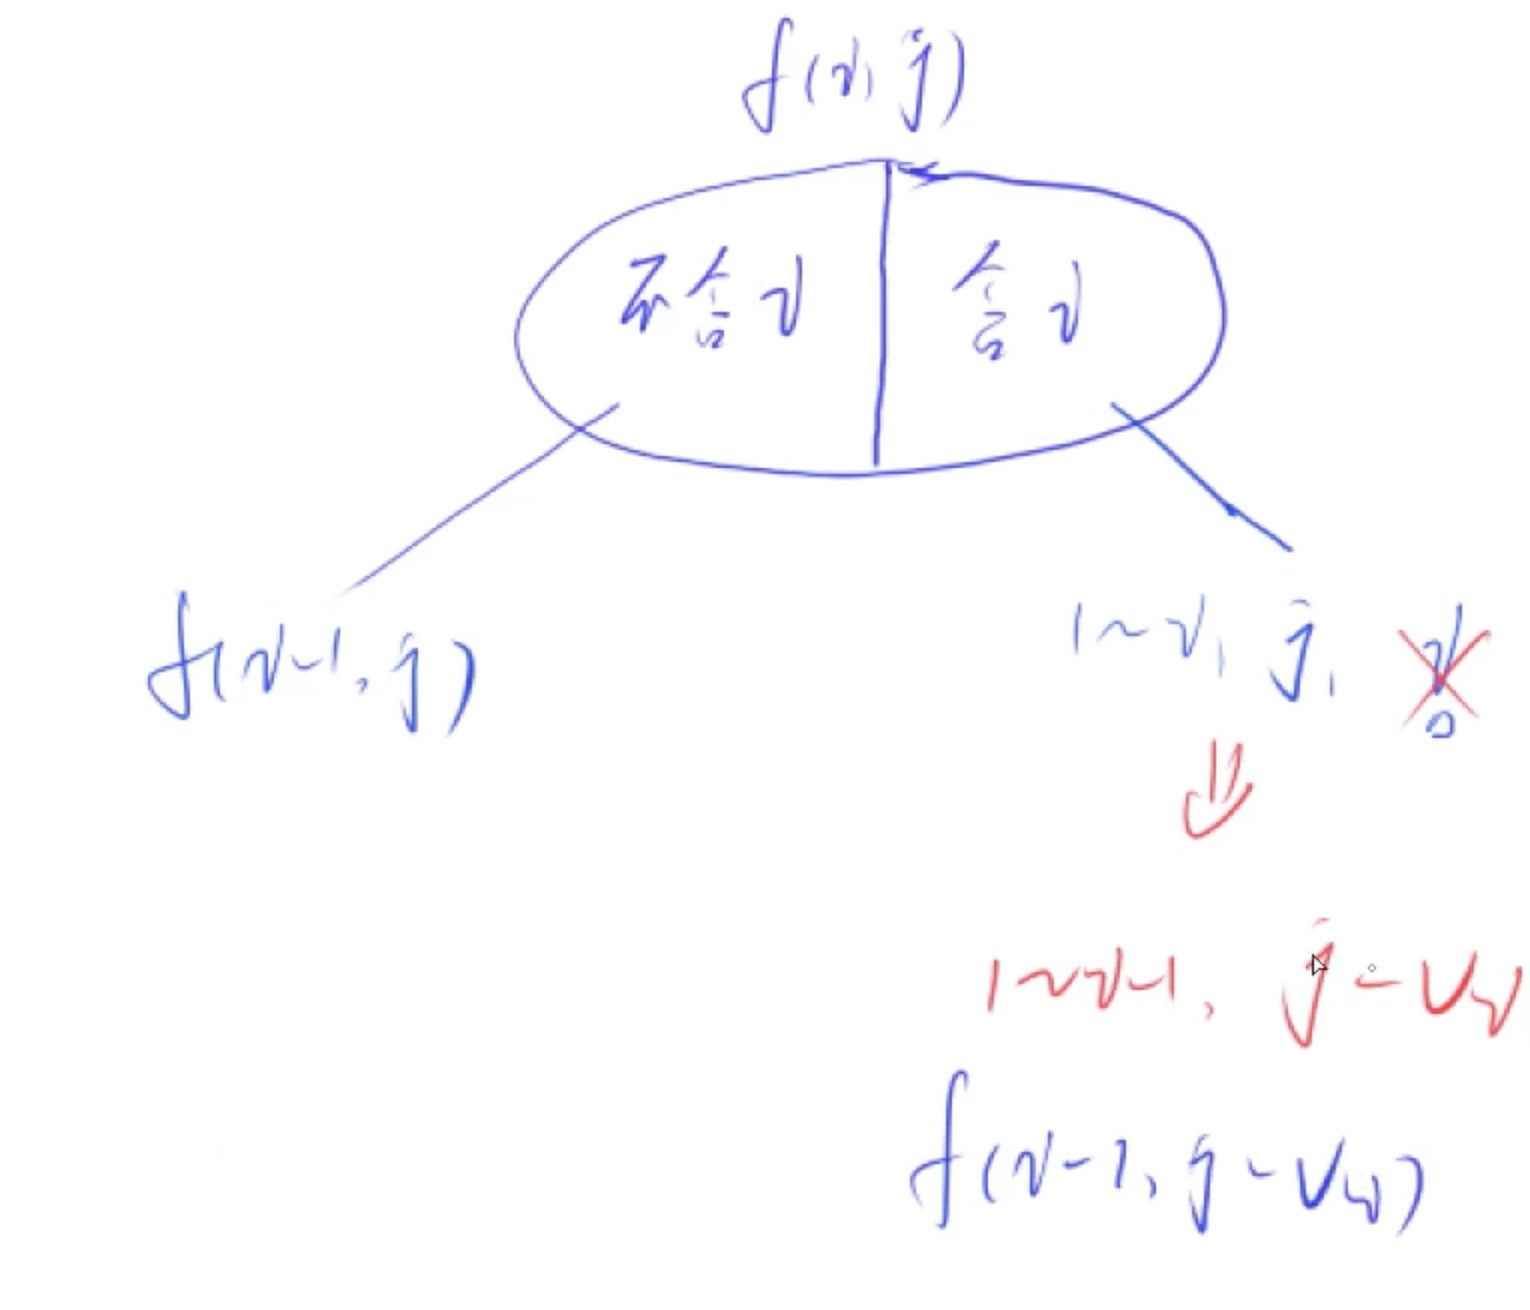 f(i, j)
不含 i
含 i
f(i-1, j)
1~i, j, i
1~i-1, j - Vi
f(i-1, j - Vi)